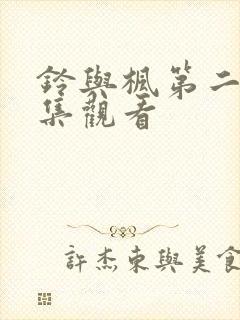 鈴與楓第二
集觀看
許杰東與美食